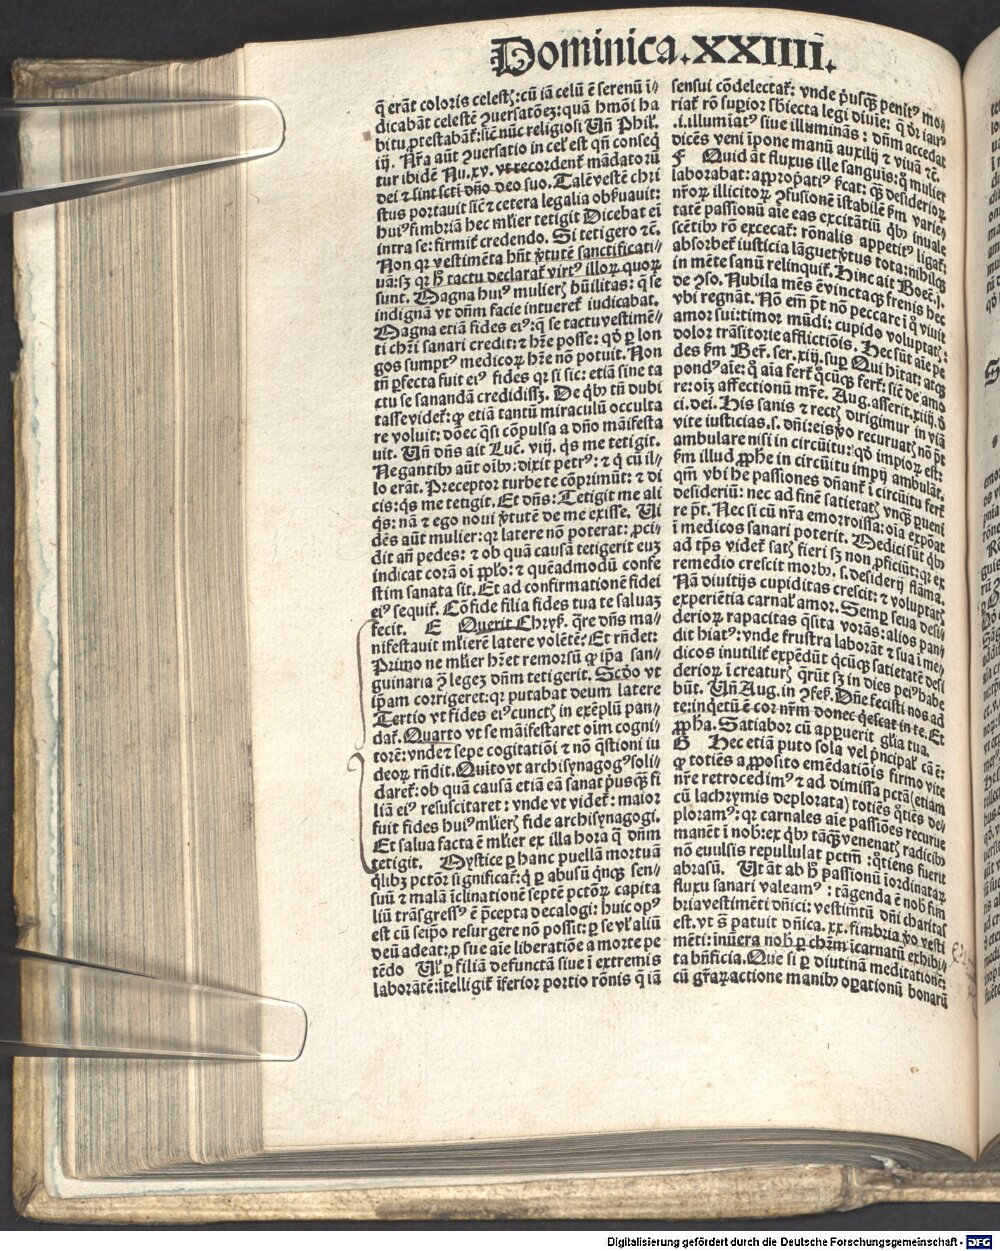 Dominica.XXIIII.
q̃ erãt coloris celestꝭ: cũ iã celũ ẽ serenũ i⸗
dicabãt celestẽ ꝯuersatõeꝫ: quã hmõi ha
bitu ꝓtestabãt᷑: sic̃ nũc religiosi Uñ Phil̃.
iij. Nr̃a aũt ꝯuersatio in cel̃ est qñ conseq̃
tur ibidẽ Nu.xv. vt recordent᷑ mãdatorũ
dei ⁊ sint sctĩ dño deo suo. Talẽ vestẽ chri
stus portauit sic̃ ⁊ cetera legalia obẜuauit:
huiꝰ fimbriã hec ml̃ier tetigit Dicebat eĩ
intra se: firmit᷑ credendo. Si tetigero ⁊c̃.
Non qꝛ vestimẽta hñt ꝟtutẽ sanctificati⸗
uã: sꝫ qꝛ h̊ tactu declarat᷑ virtꝰ illoꝝ quoꝝ
sunt. Magna huiꝰ mulierꝭ hũilitas: q̃ se
indignã vt dñm facie intueret᷑ iudicabat.
Magna etiã fides eiꝰ: q̃ se tactu vestimẽ⸗
ti chr̃i sanari credit: ⁊ hr̃e posse: qđ ꝑ lon
gos sumptꝰ medicoꝝ hr̃e nõ potuit. Non
tñ ꝑfecta fuit eiꝰ fides qꝛ si sic: etiã sine ta
ctu se sanandã credidissꝫ. De qb̾ tñ dubi
tasse videt᷑: qꝛ etiã tantũ miraculũ occulta
re voluit: dõec q̃si cõpulsa a dño mãifesta
uit. Uñ dñs ait Luc̃. viij. qs me tetigit.
Negantib̾ aũt oib̾: dixit petrꝰ: ⁊ q̃ cũ il⸗
lo erãt. Preceptor turbe te cõprimũt: ⁊ di
cis: qs me tetigit. Et dñs: Tetigit me ali
qs: nã ⁊ ego noui ꝟtutẽ de me exisse. Ui
dẽs aũt mulier: qꝛ latere nõ poterat: ꝓci⸗
dit añ pedes: ⁊ ob quã causã tetigerit euꝫ
indicat corã oĩ ppl̃o: ⁊ quẽadmodũ confe
stim sanata sit. Et ad confirmationẽ fidei
eiꝰ sequit᷑. Cõfide filia fides tua te saluaꝫ
fecit. E Querit Chryẜ. q̃re dñs ma⸗
nifestauit ml̃ierẽ latere volẽtẽ? Et rñdet:
Primo ne ml̃ier hr̃et remorsũ ꝙ ip̃a san⸗
guinaria ꝯ̃ legeꝫ dñm tetigerit. Scđo vt
ip̃am corrigeret: qꝛ putabat deum latere
Tertio vt fides eiꝰ cunctꝭ in exẽplũ pan⸗
dat᷑. Quarto vt se mãifestaret oĩm cogni⸗
torẽ: vnde ⁊ sepe cogitatiõi ⁊ nõ q̃stioni iu
deoꝝ rñdit. Quĩto vt archisynagogꝰ soli⸗
daret᷑: ob quã causã etiã eã sanat p̾usqꝫ fi
liã eiꝰ resuscitaret: vnde vt videt᷑: maior
fuit fides huiꝰ ml̃ierꝭ fide archisynagogi.
Et salua facta ẽ ml̃ier ex illa hora q̃ dñm
tetigit. Mystice ꝑ hanc puellã mortuã
q̃libꝫ pctõr significat᷑: q̃ ꝑ abusũ qnqꝫ sen⸗
suũ ⁊ malã ĩclinationẽ septẽ pctõꝝ capita
liũ trãsgressꝰ ẽ p̃cepta decalogi: huic opꝰ
est cũ seip̃o resurgere nõ possit: ꝑ se vl̃ aliũ
deũ adeat: ꝓ sue aĩe liberatiõe a morte pe
tẽdo Ul̃ ꝑ filiã defunctã siue ĩ extremis
laborãtẽ: ĩtelligit᷑ ĩferior portio rõnis q̃ iã
sensui cõdelectat᷑: vnde p̾usqꝫ penitꝰ mo⸗
riat᷑ rõ suꝑior sb̾iecta legi diuie: q̃ dr̃ iaurꝰ
.i. illumĩatꝰ siue illuminãs: dñm accedat
dicẽs veni ĩpone manũ auxilij ⁊ viuã ⁊c̃.
F Quid aũt fluxus ille sanguis: q̃ mulier
laborabat: apꝓpriatiꝰ ẜcat: qꝫ desiderioꝝ
nr̃oꝝ illicitoꝝ ꝯfusionẽ ĩstabilẽ ẜm varie⸗
tatẽ passionũ aĩe eas excitãtiũ qb̾ inuale
scẽtib̾ rõ excecat᷑: rõnalis appetitꝰ ligat᷑:
absorbet᷑ iusticia lãguet ꝟtus tota: nihilqꝫ
in mẽte sanũ relinquit᷑. Hinc ait Boec̃. j.
de ꝯso. Nubila mẽs ẽ vinctaqꝫ frenis hec
vbi regnãt. Nõ em̃ pt̃ nõ peccare ĩ q̃ viuit
amor sui: timor mũdi: cupido voluptatꝭ:
dolor trãsitorie afflictiõis. Hec sũt aĩe pe
des ẜm Ber̃. ser. xiij. suꝑ Qui hitat: atqꝫ
pondꝰ aĩe: q̃ aĩa fert᷑ q̃cũqꝫ fert᷑: sic̃ de amo
re: oĩꝫ affectionũ mr̃e. Aug. asserit. xiiij. đ
ci. dei. His sanis ⁊ rectꝭ dirigimur in viã
vite iusticias. s. dñi: eis ꝟo recuruatꝭ nõ pt̃
ambulare nisi in circũitu: qđ impioꝝ est:
ẜm illud ꝓphe in circũitu impij ambulãt.
qm̃ vbi he passiones dñant᷑ ĩ circũitu fert᷑
desideriũ: nec ad finẽ satietatꝭ vnqꝫ ꝑueni
re pt̃. Nec si cũ nr̃a emorroissa: oĩa expõat
ĩ medicos sanari poterit. Medici sũt qb̾
ad tp̃s videt᷑ satꝭ fieri sꝫ non ꝓficiũt: qꝛ ex
remedio crescit morb̾. s. desiderij flãma.
Nã diuitijs cupiditas crescit: ⁊ voluptatꝭ
experiẽtia carnal̃ amor. Semꝑ seua desi⸗
derioꝝ rapacitas q̃sita vorãs: alios pan⸗
dit hiatꝰ: vnde frustra laborãt ⁊ sua ĩ me⸗
dicos inutilit᷑ expẽdũt q̃cũqꝫ satietatẽ desi
derioꝝ ĩ creaturꝭ q̃rũt sꝫ in dies peiꝰ habe
bũt. Uñ Aug. in ꝯfeẜ. Dñe fecisti nos ad
te: inq̃etũ ẽ cor nr̃m donec q̃escat in te. Et
ꝓpha. Satiabor cũ apꝑuerit gl̃ia tua.
G Hec etiã puto sola vel p̾ncipal̃ cã ẽ:
ꝙ totiẽs a ꝓposito emẽdatiõis firmo vite
nr̃e retrocedimꝰ ⁊ ad dimissa pctã (etiam
cũ lachrymis deplorata) totiẽs q̃tiẽs de⸗
ploramꝰ: qꝛ carnales aĩe passiões recurue
manẽt ĩ nob̾: ex qb̾ tãqꝫ venenatꝭ radicib̾
nõ euulsis repullulat pctm̃: q̃tiens fuerit
abrasũ. Ut ãt ab h̊ passionũ ĩordinataꝝ
fluxu sanari valeamꝰ: tãgenda ẽ nob̾ fim
bria vestimẽti dñici: vestimtũ dñi charitas
est. vt s̃ patuit dñica. xx. fimbria ꝟo vesti
mẽti: inũera nob̾ ꝑ chr̃m ĩcarnatũ exhibi⸗
ta bñficia. Que si ꝑ diutinã meditationẽ:
cũ gr̃aꝝ actione manib̾ oꝑationũ bonarũ
Digitalisierung gefördert durch die Deutsche Forschungsgemeinschaft - DFG